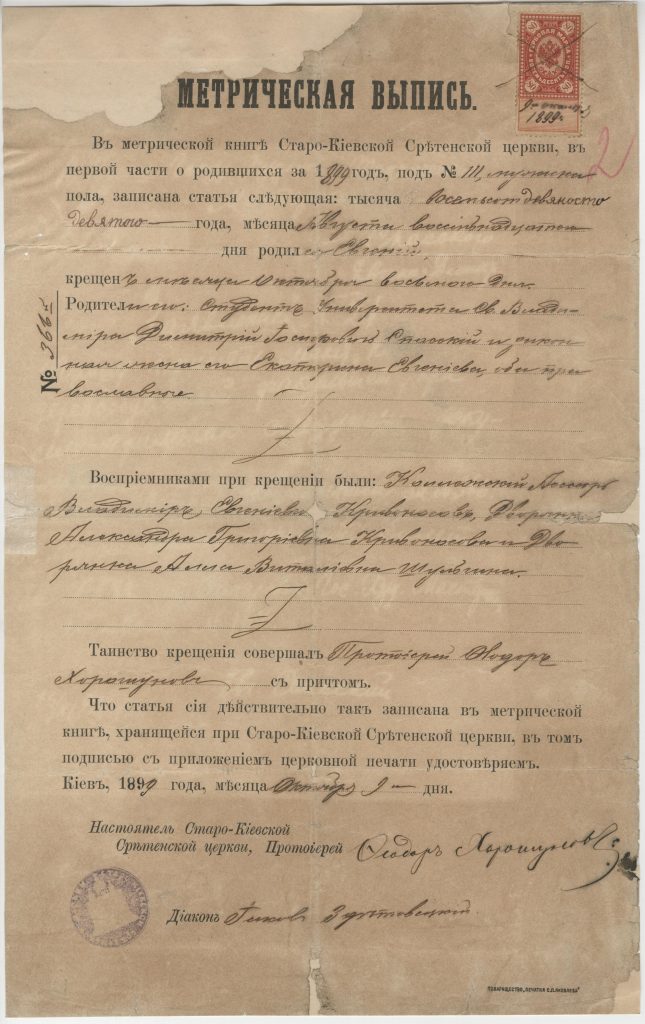 МЕТРИЧЕСКАЯ ВЫПИСЬ.
9-
1899 г.
2
Въ метрической книгѣ Старо-Кіевской Срѣтенской церкви, въ
первой части о родившихся за 1899 годъ, подъ № 111,
пола, записана статья слѣдующая: тысяча восемьсот девяносто
девятого года, мѣсяца Августа восемнадцатаго
дня родился Евгеній,
крещенъ мѣсяца Октября восьмого дня.
Родители его: Студентъ Университета Св. Влади-
міра Димитрій Спасскій и закон-
ная жена его Екатерина Евгеніева, оба пра
вославные.
№ 3665
Воспріемниками при крещеніи были: Коллежскій Ассесоръ
Владиміръ Евгеніевъ Кривоносовъ, Дворянка
Александра Григоріевна Кривоносова и Дво
рянка Алла Виталіевна Шульгина.
Таинство крещенія совершалъ Протоіерей Ѳеодоръ
съ причтомъ.
Что статья сія дѣйствительно такъ записана въ метрической
книгѣ, хранящейся при Старо-Кіевской Срѣтенской церкви, въ томъ
подписью съ приложеніемъ церковной печати удостовѣряемъ.
Кіевъ, 1899 года, мѣсяца Октября 9 дня.
Настоятель Старо-Кіевской
Срѣтенской церкви, Протоіерей Ѳеодоръ
Діаконъ